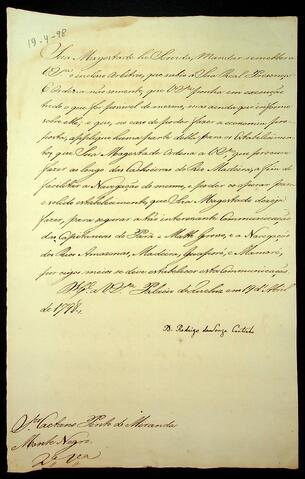 19-4-98
Sua Magestade he Servida, Mandar remetter a
V. S.ª o incluso Arbitrio, que subio à Sua Real Presença
E Ordena não sómente, que V. S.ª ponha em execução
tudo o que for possivel do mesmo, mas ainda que informe
sobre elle; e que, no caso de poder fazer a economia pro-
posta, applique huma parte della, para os Estabelecimen-
tos, que Sua Magestade Ordena a V. S.ª que procure
fazer ao longo das Cachoeiras do Rio Madeira, a fim de
facilitar a Navegação do mesmo, e poder
e solido estabelecimento, que Sua Magestade deseja
fazer, para segurar a tão interessante Communicação
das Capitanias do Pará e Matto Grosso, e a Navegação
dos Rios Amazonas, Madeira, Guaporé, e Mamoré,
por cujos meios se deve estabelecer esta Communicação.
D.s G.e a V. S.ª Palacio de Queluz em 19 d'Abril
de 1798.
D. Rodrigo de Souza Coutinho
S.or Caetano Pinto de Miranda
Monte Negro.
2.ª Via